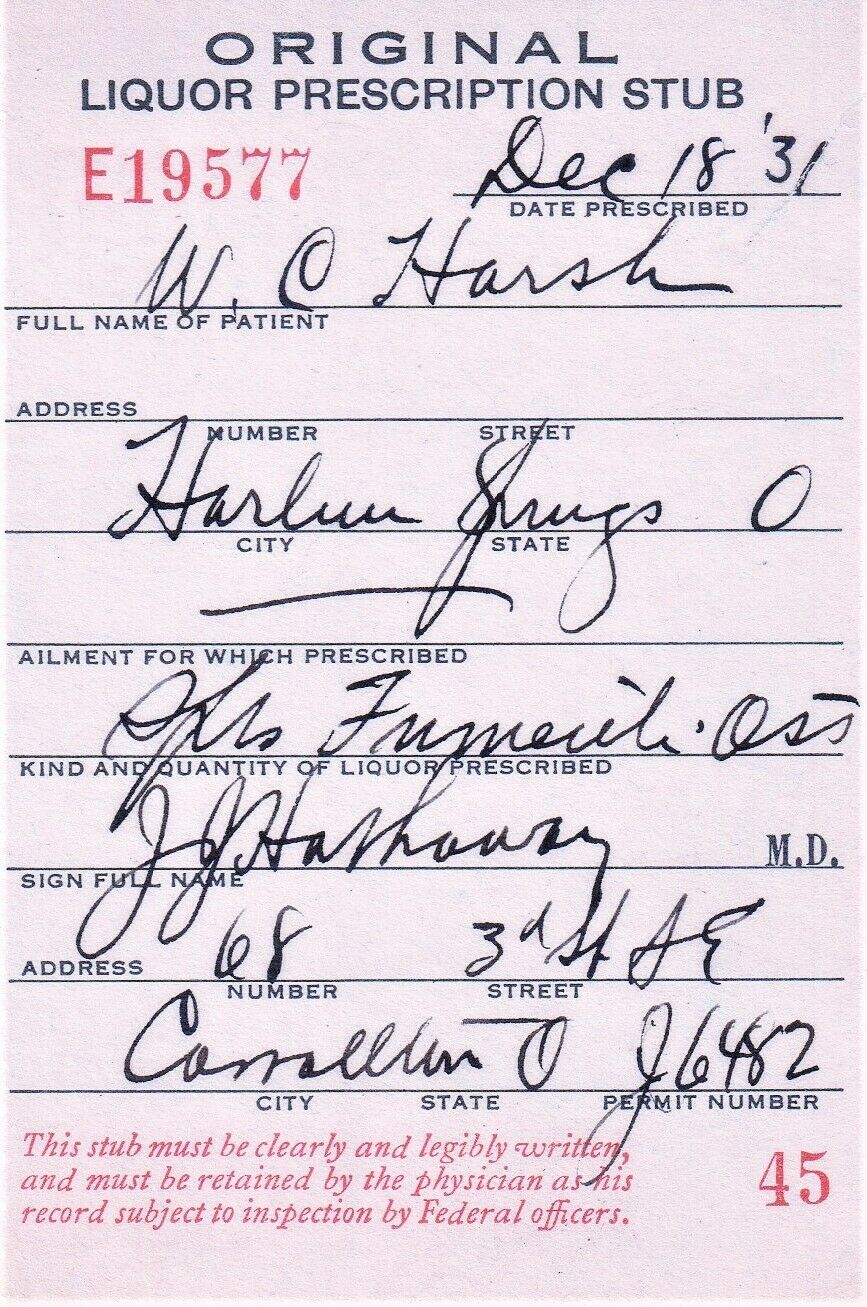 ORIGINAL
LIQUOR PRESCRIPTION STUB
E19577
Dec 18 '31
DATE PRESCRIBED
W. C Harsh
FULL NAME OF PATIENT
ADDRESS
NUMBER STREET
Harlem Springs O
CITY STATE
AILMENT FOR WHICH PRESCRIBED
Frumenti
KIND AND QUANTITY OF LIQUOR PRESCRIBED
J J Hathaway M.D.
SIGN FULL NAME
ADDRESS 68 3rd St SE
NUMBER STREET
Carrollton O J6482
CITY STATE PERMIT NUMBER
This stub must be clearly and legibly written,
and must be retained by the physician as his
record subject to inspection by Federal officers.
45